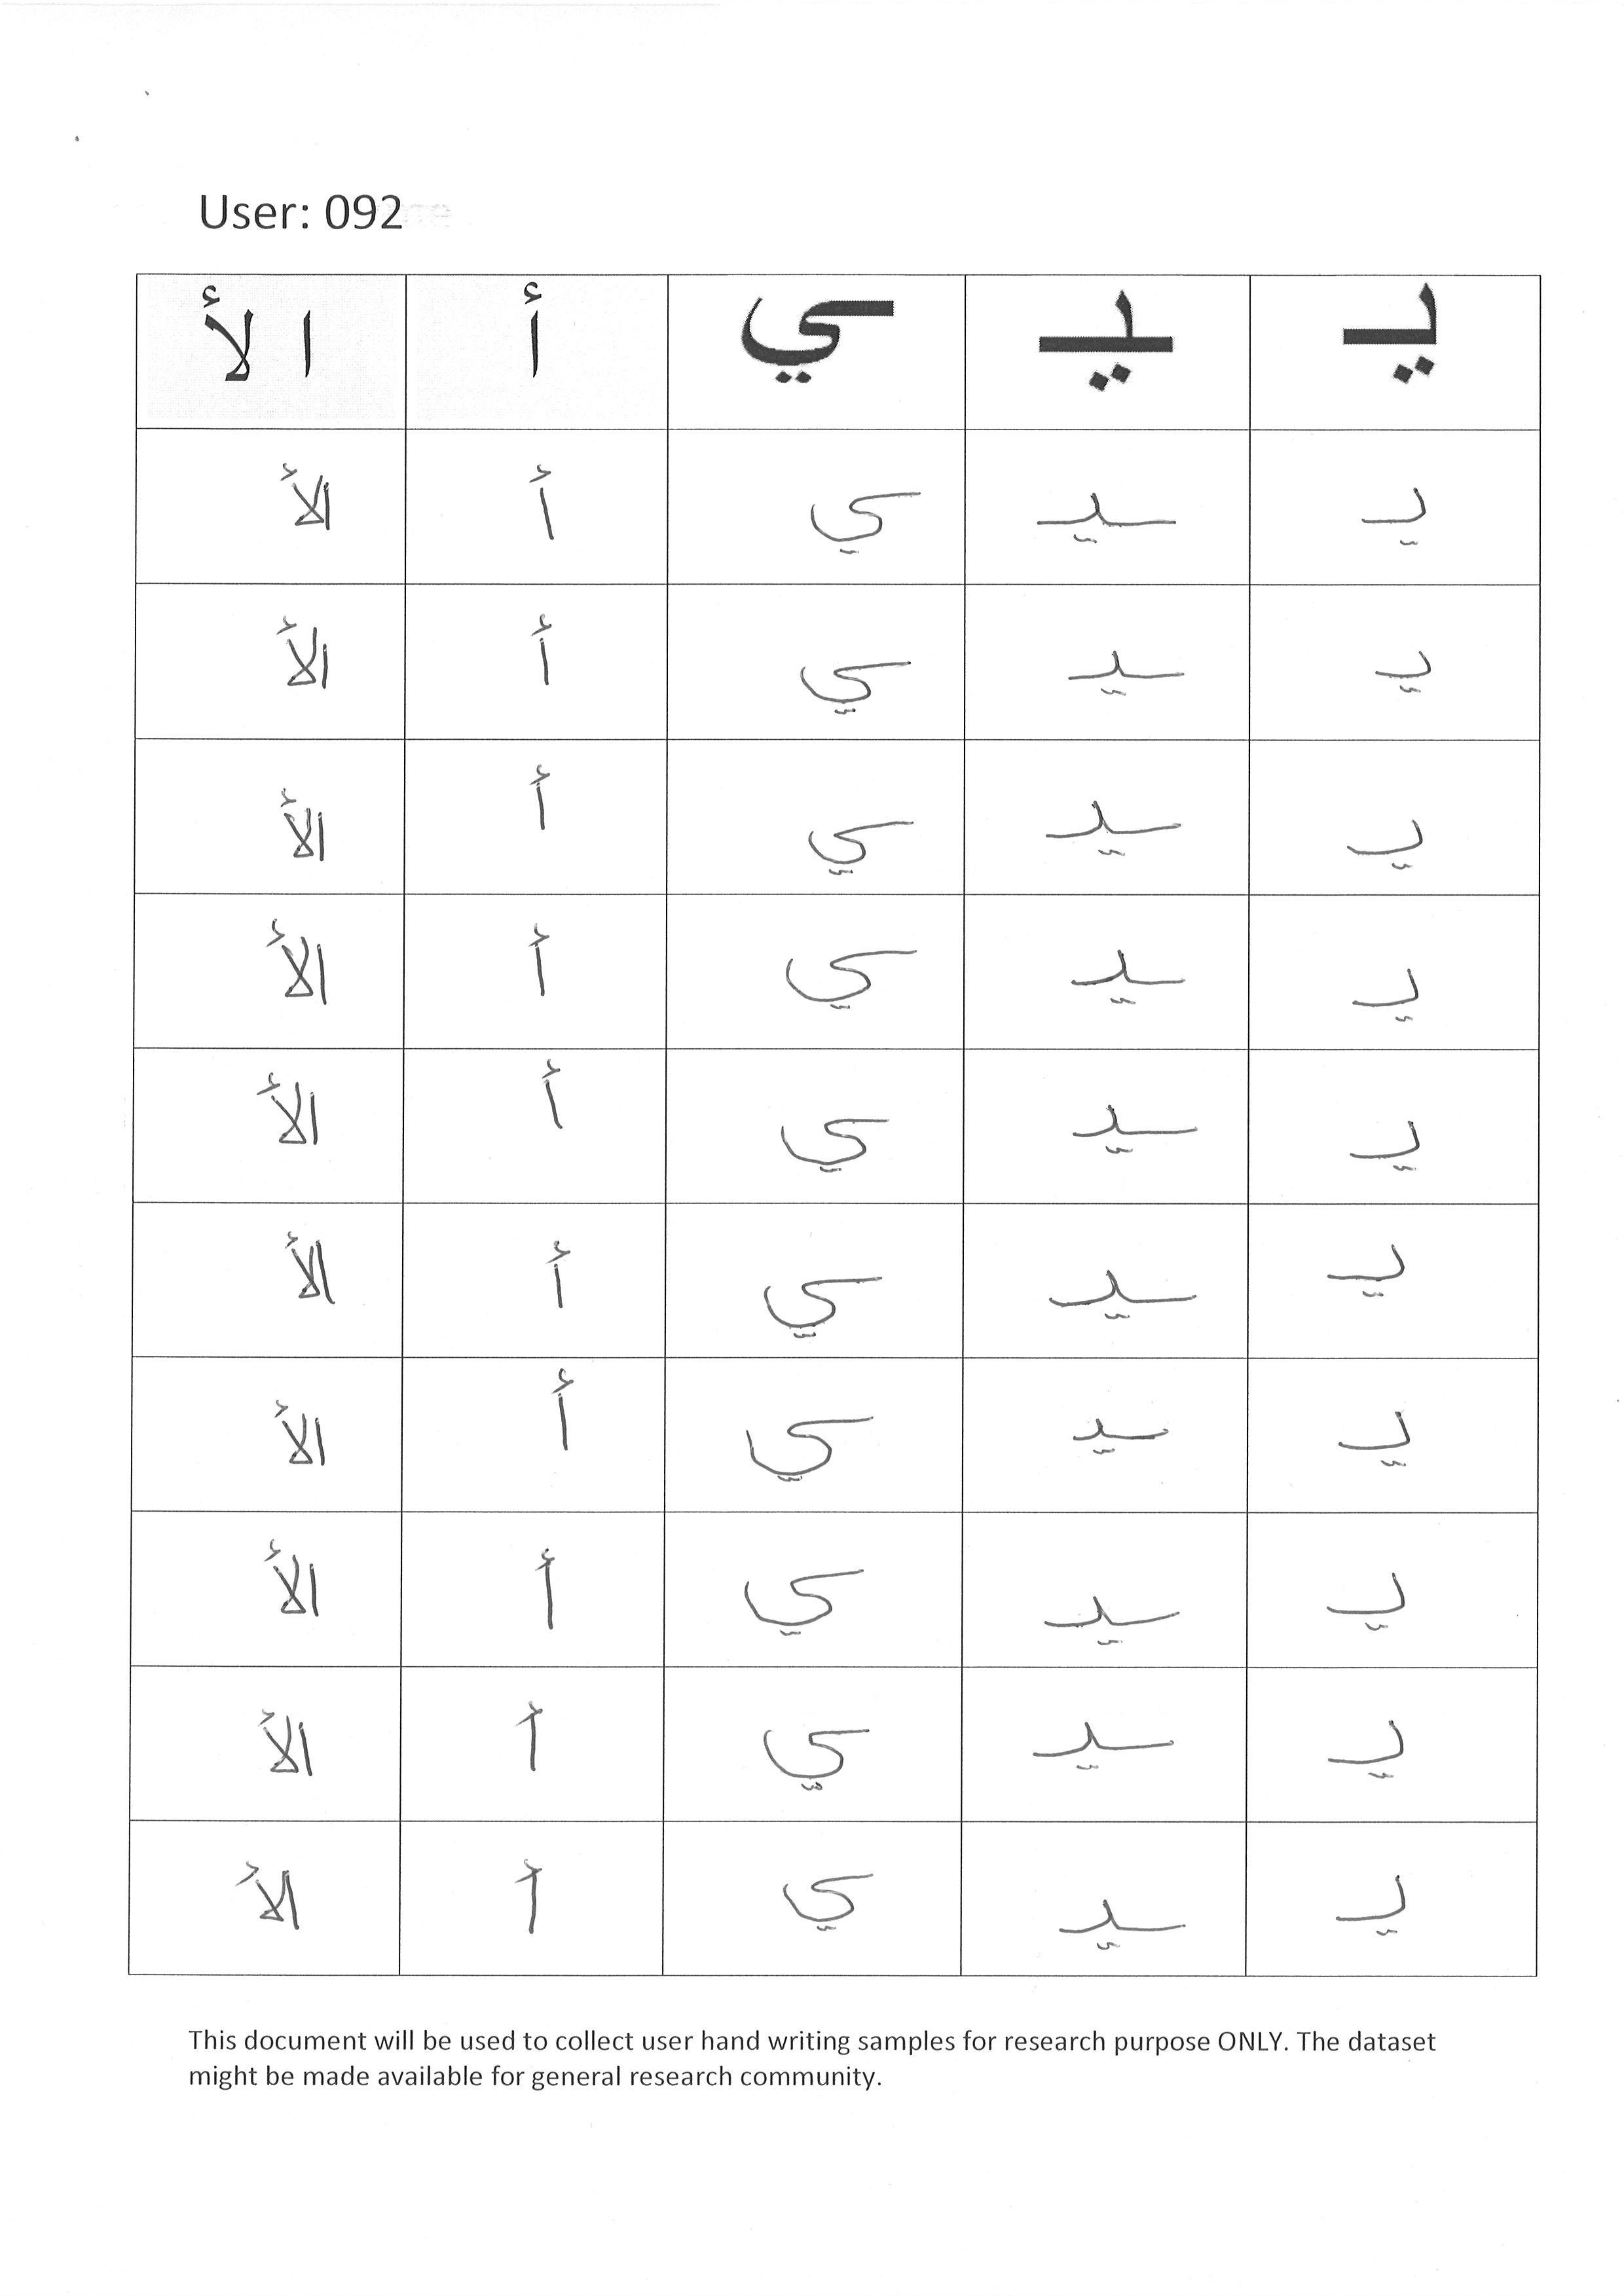 User: 092
يـ ـيـ ـي أ ا لأ
يـ ـيـ ـي أ الأ
يـ ـيـ ـي أ الأ
يـ ـيـ ـي أ الأ
يـ ـيـ ـي أ الأ
يـ ـيـ ـي أ الأ
يـ ـيـ ـي أ الأ
يـ ـيـ ـي أ الأ
يـ ـيـ ـي أ الأ
يـ ـيـ ـي أ الأ
يـ ـيـ ـي أ الأ
This document will be used to collect user hand writing samples for research purpose ONLY. The dataset
might be made available for general research community.